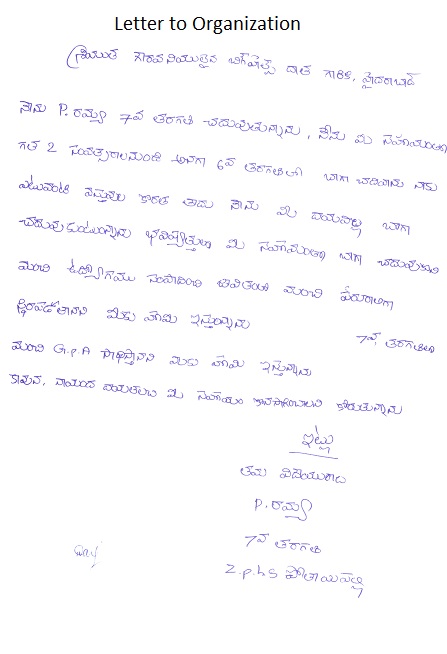 Letter to Organization
శ్రీయుత గౌరవనీయులైన బిగ్‌హెల్ప్ దాత గారికి, హైదరాబాద్
నేను P. రమ్య 7వ తరగతి చదువుతున్నాను, నేను మీ సహాయంతో
గత 2 సంవత్సరాలనుండి అనగా 6వ తరగతిలో బాగా చదివాను నాకు
ఎటువంటి వస్తువుల కొరత లేదు నేను మీ దయవల్ల బాగా
చదువుకుంటున్నాను భవిష్యత్తులో మీ సహాయంతో బాగా చదువుకుని
మంచి ఉద్యోగము సంపాదించి జీవితంలో మంచి పేరురాలిగా
స్థిరపడతానని మీకు హామి ఇస్తున్నాను 7వ, తరగతిలో
మంచి G.P.A సాధిస్తానని మీకు హామి ఇస్తున్నాను
కావున, నాయందు దయతలచి మీ సహాయం కొనసాగించాలని కోరుతున్నాను
ఇట్లు
తమ విధేయురాలు
P. రమ్య
7వ తరగతి
Z.p.h.s పోతాయిపల్లి